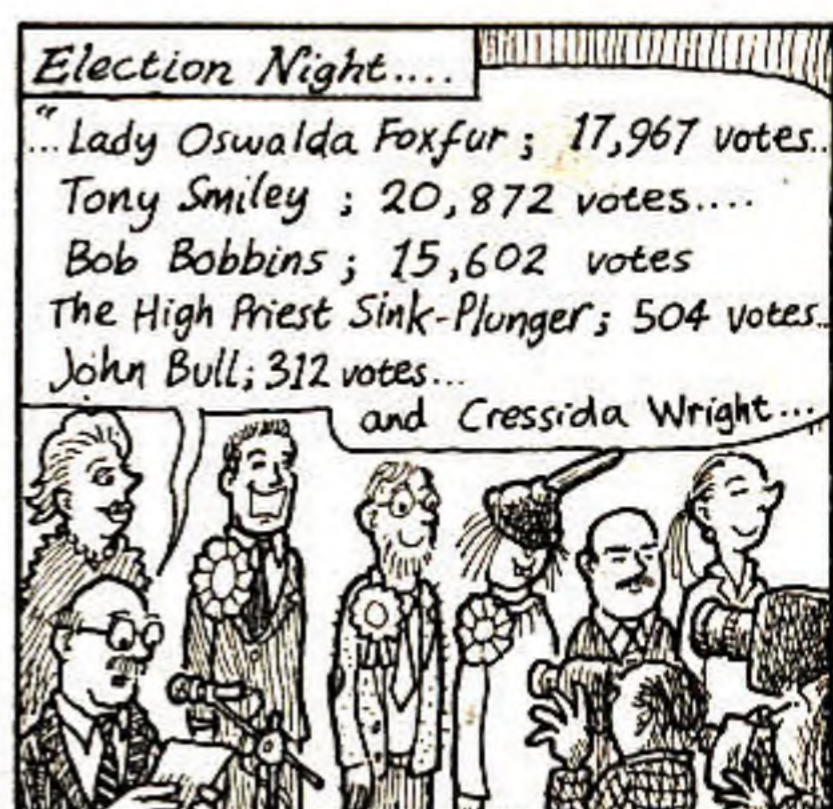 Election Night....
"...Lady Oswalda Foxfur ; 17,967 votes..
Tony Smiley ; 20,872 votes....
Bob Bobbins ; 15,602 votes
The High Priest Sink-Plunger ; 504 votes..
John Bull ; 312 votes...
and Cressida Wright...